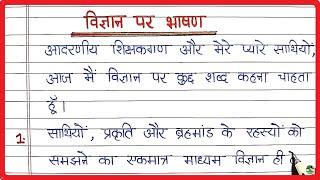 विज्ञान पर भाषण
आदरणीय शिक्षकगण और मेरे प्यारे साथियों,
आज मैं विज्ञान पर कुछ शब्द कहना चाहता
हूँ।
1. साथियों, प्रकृति और ब्रहमांड के रहस्यों को
समझने का एकमात्र माध्यम विज्ञान ही